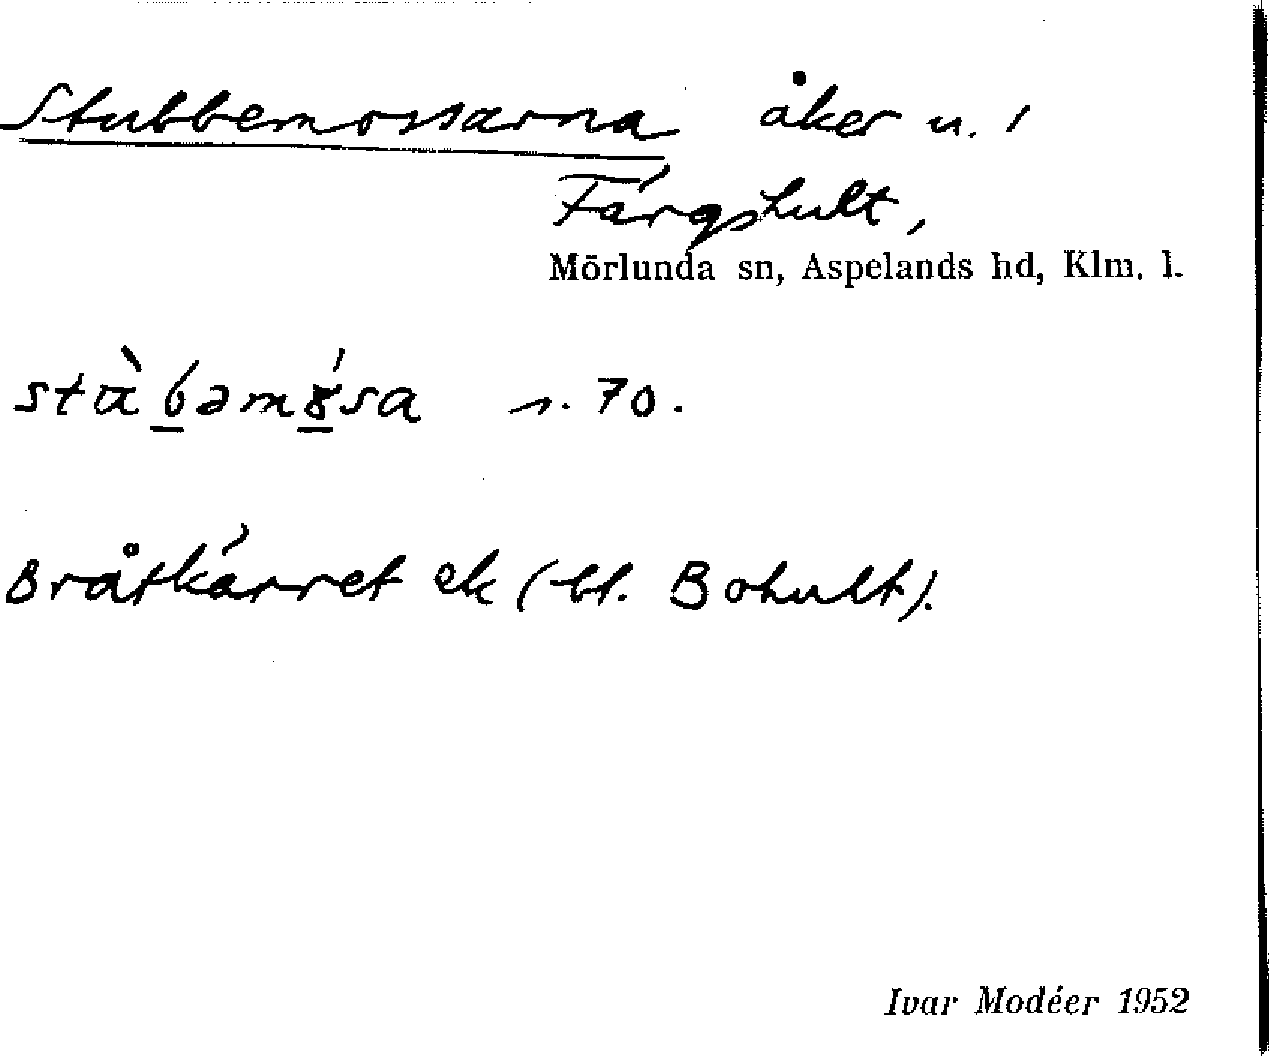 Stubbemossarna åker u. 1
Färgshult,
Mörlunda sn, Aspelands hd, Klm. l.
s. 70.
Bråtkärret ek (bl. Bohult).
Ivar Modéer 1952